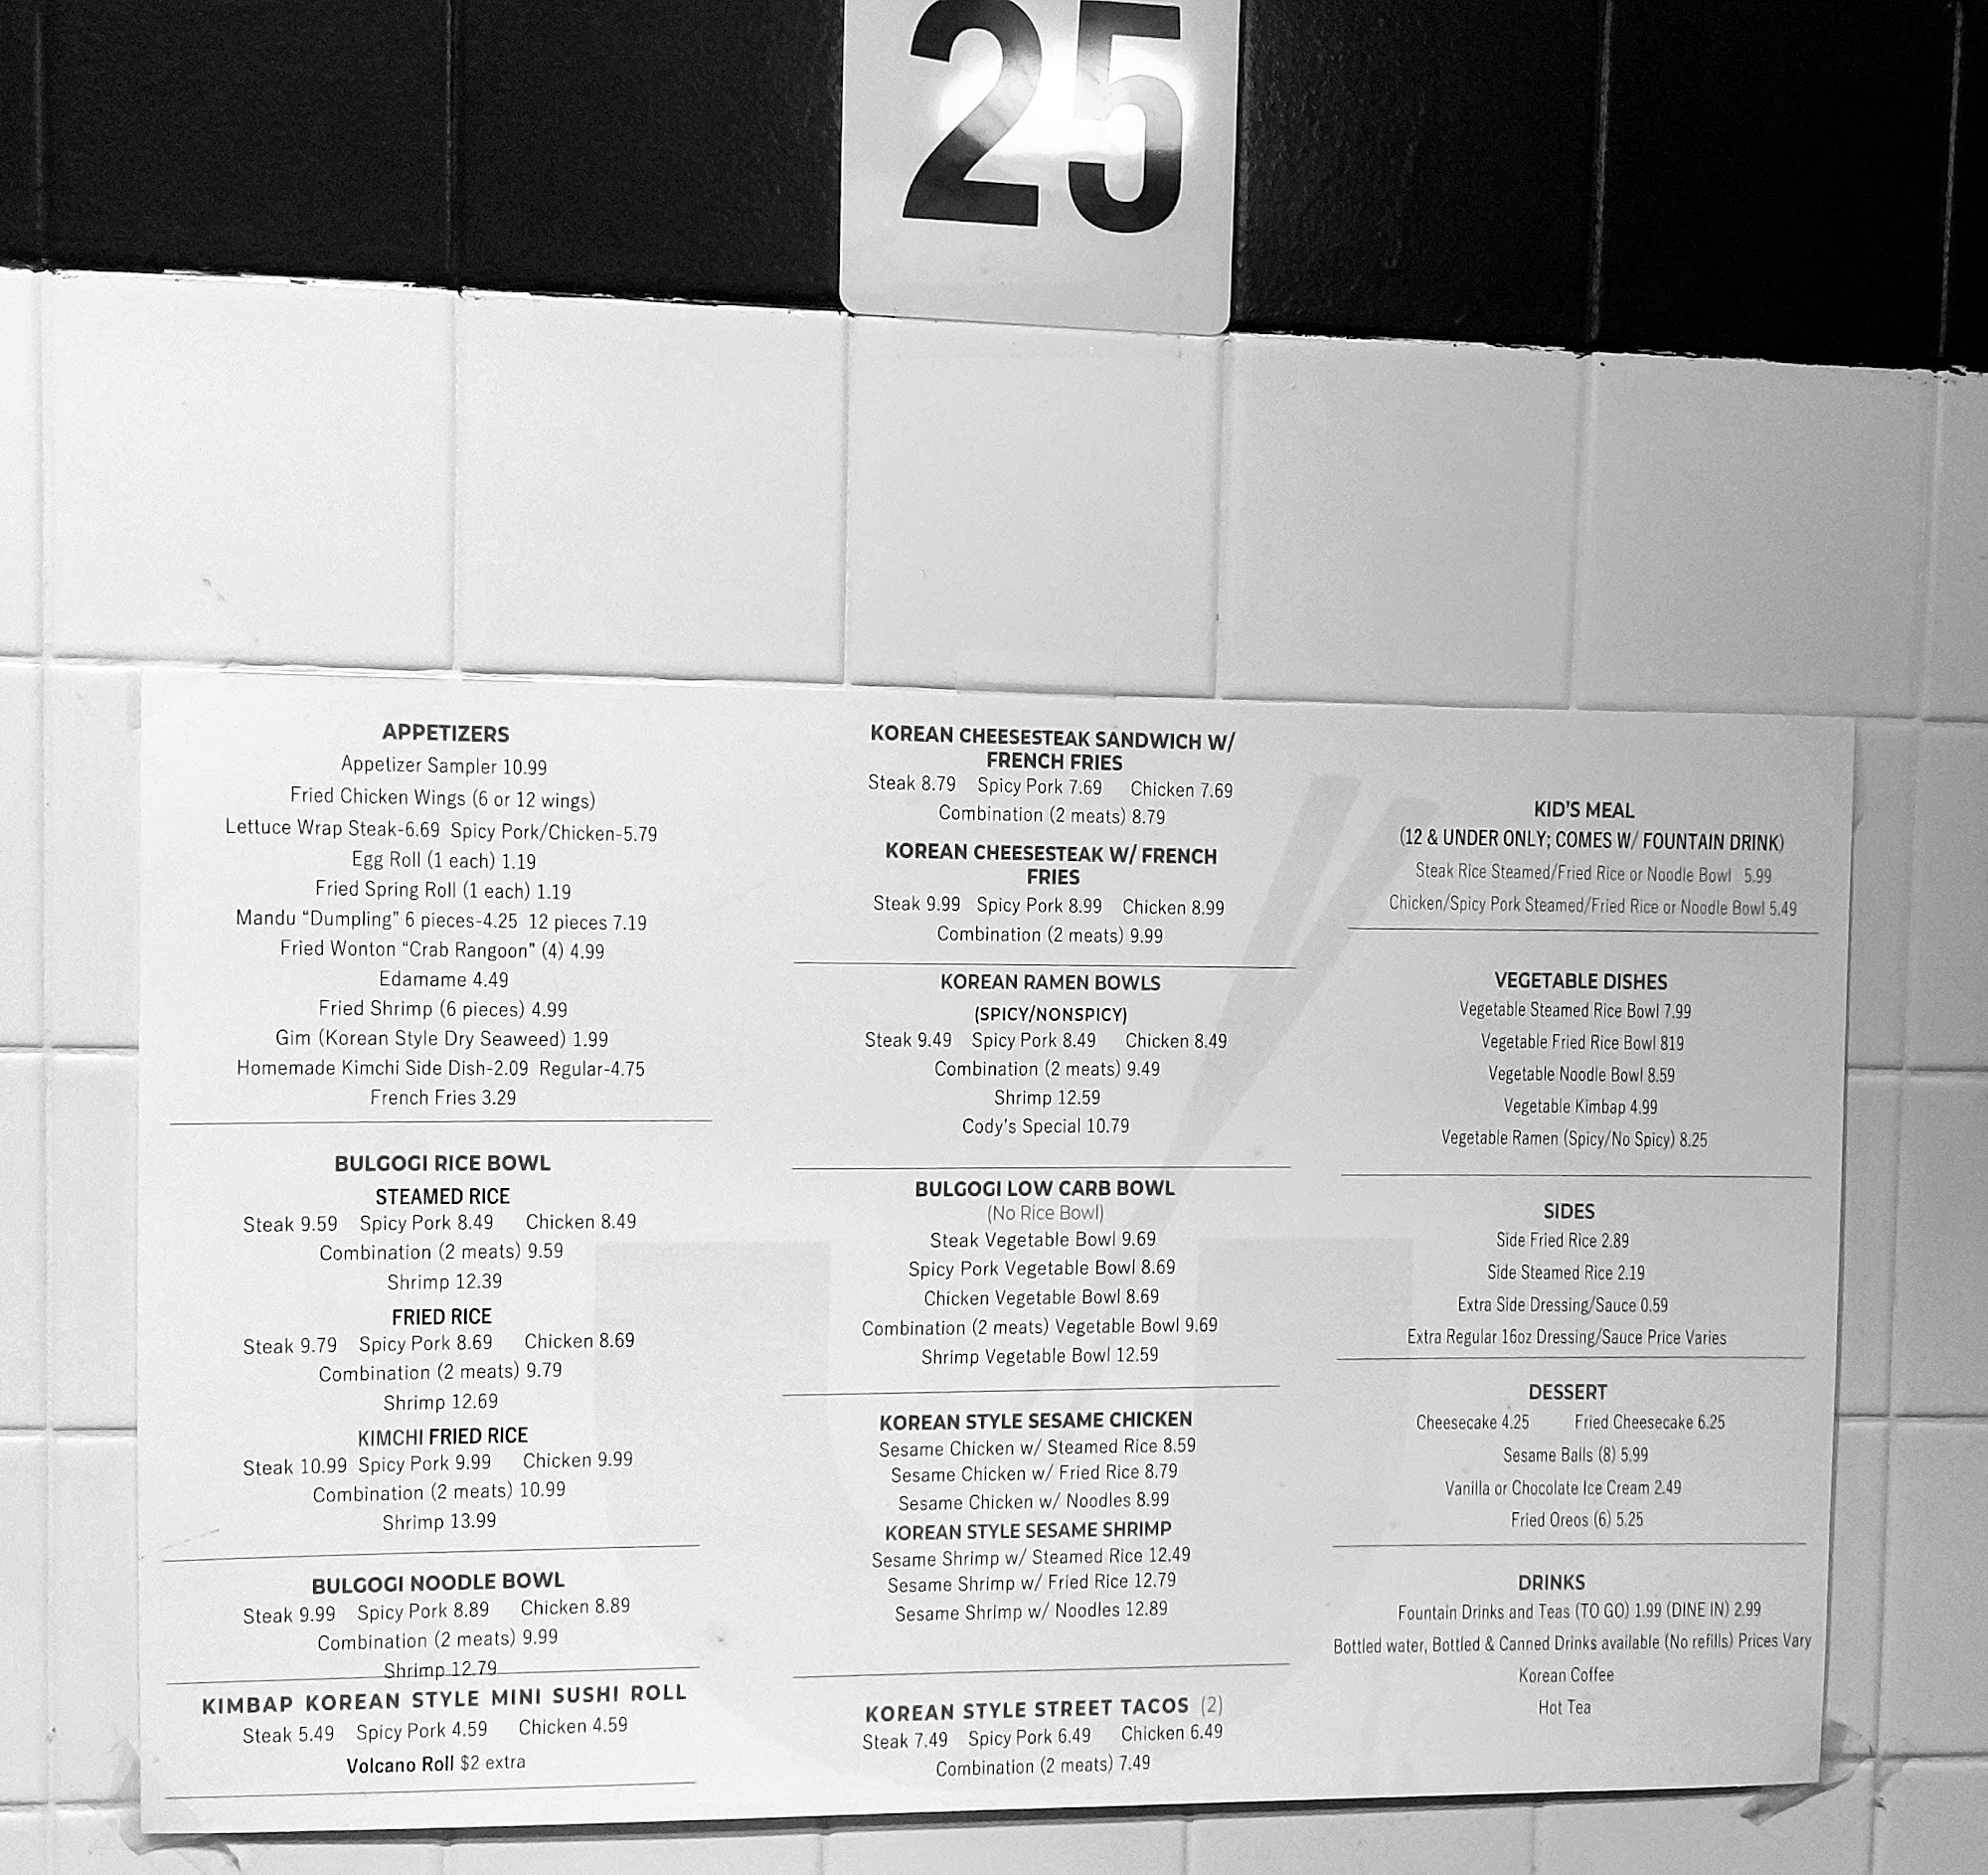 25
APPETIZERS
Appetizer Sampler 10.99
Fried Chicken Wings (6 or 12 wings)
Lettuce Wrap Steak-6.69 Spicy Pork/Chicken-5.79
Egg Roll (1 each) 1.19
Fried Spring Roll (1 each) 1.19
Mandu “Dumpling” 6 pieces-4.25 12 pieces 7.19
Fried Wonton “Crab Rangoon” (4) 4.99
Edamame 4.49
Fried Shrimp (6 pieces) 4.99
Gim (Korean Style Dry Seaweed) 1.99
Homemade Kimchi Side Dish-2.09 Regular-4.75
French Fries 3.29
BULGOGI RICE BOWL
STEAMED RICE
Steak 9.59 Spicy Pork 8.49 Chicken 8.49
Combination (2 meats) 9.59
Shrimp 12.39
FRIED RICE
Steak 9.79 Spicy Pork 8.69 Chicken 8.69
Combination (2 meats) 9.79
Shrimp 12.69
KIMCHI FRIED RICE
Steak 10.99 Spicy Pork 9.99 Chicken 9.99
Combination (2 meats) 10.99
Shrimp 13.99
BULGOGI NOODLE BOWL
Steak 9.99 Spicy Pork 8.89 Chicken 8.89
Combination (2 meats) 9.99
Shrimp 12.79
KIMBAP KOREAN STYLE MINI SUSHI ROLL
Steak 5.49 Spicy Pork 4.59 Chicken 4.59
Volcano Roll $2 extra
KOREAN CHEESESTEAK SANDWICH W/
FRENCH FRIES
Steak 8.79 Spicy Pork 7.69 Chicken 7.69
Combination (2 meats) 8.79
KOREAN CHEESESTEAK W/ FRENCH
FRIES
Steak 9.99 Spicy Pork 8.99 Chicken 8.99
Combination (2 meats) 9.99
KOREAN RAMEN BOWLS
(SPICY/NONSPICY)
Steak 9.49 Spicy Pork 8.49 Chicken 8.49
Combination (2 meats) 9.49
Shrimp 12.59
Cody's Special 10.79
BULGOGI LOW CARB BOWL
(No Rice Bowl)
Steak Vegetable Bowl 9.69
Spicy Pork Vegetable Bowl 8.69
Chicken Vegetable Bowl 8.69
Combination (2 meats) Vegetable Bowl 9.69
Shrimp Vegetable Bowl 12.59
KOREAN STYLE SESAME CHICKEN
Sesame Chicken w/ Steamed Rice 8.59
Sesame Chicken w/ Fried Rice 8.79
Sesame Chicken w/ Noodles 8.99
KOREAN STYLE SESAME SHRIMP
Sesame Shrimp w/ Steamed Rice 12.49
Sesame Shrimp w/ Fried Rice 12.79
Sesame Shrimp w/ Noodles 12.89
KOREAN STYLE STREET TACOS (2)
Steak 7.49 Spicy Pork 6.49 Chicken 6.49
Combination (2 meats) 7.49
KID'S MEAL
(12 & UNDER ONLY; COMES W/ FOUNTAIN DRINK)
Steak Rice Steamed/Fried Rice or Noodle Bowl 5.99
Chicken/Spicy Pork Steamed/Fried Rice or Noodle Bowl 5.49
VEGETABLE DISHES
Vegetable Steamed Rice Bowl 7.99
Vegetable Fried Rice Bowl 819
Vegetable Noodle Bowl 8.59
Vegetable Kimbap 4.99
Vegetable Ramen (Spicy/No Spicy) 8.25
SIDES
Side Fried Rice 2.89
Side Steamed Rice 2.19
Extra Side Dressing/Sauce 0.59
Extra Regular 16oz Dressing/Sauce Price Varies
DESSERT
Cheesecake 4.25 Fried Cheesecake 6.25
Sesame Balls (8) 5.99
Vanilla or Chocolate Ice Cream 2.49
Fried Oreos (6) 5.25
DRINKS
Fountain Drinks and Teas (TO GO) 1.99 (DINE IN) 2.99
Bottled water, Bottled & Canned Drinks available (No refills) Prices Vary
Korean Coffee
Hot Tea